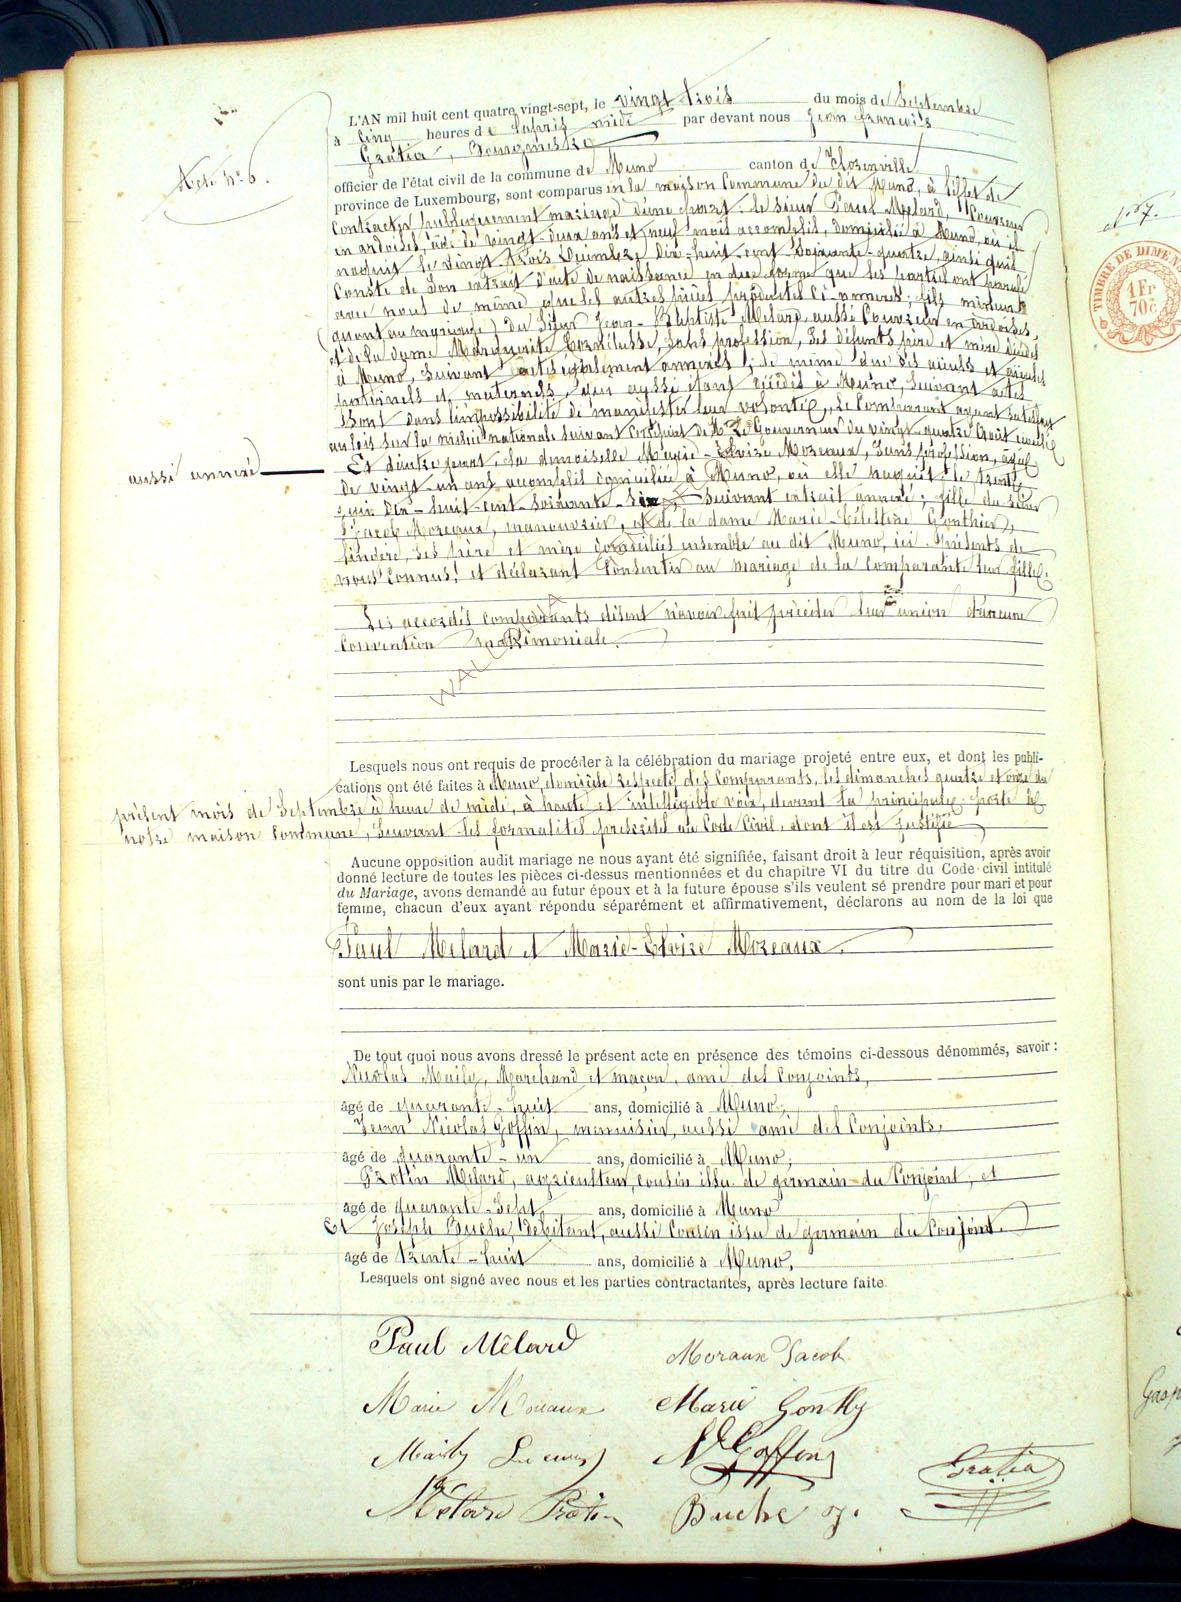 Acte N° 6.
L'AN mil huit cent quatre vingt-sept, le vingt trois du mois de Septembre
à cinq heures de l'après midi par devant nous Jean François
Gratia, Bourgmestre
officier de l'état civil de la commune de Muno canton de Florenville
province de Luxembourg, sont comparus en la maison Commune du dit Muno, à l'effet de
Contracter publiquement mariage d'une part: le sieur Paul Melard, Couvreur
en ardoises âgé de vingt-deux ans et neuf mois accomplis, domicilié à Muno, où il
naquit le vingt-trois Décembre Dix-huit-cent-Soixante-quatre, ainsi qu'il
Conste de Son extrait d'acte de naissance en due forme que les parties ont paraphé
avec nous de même que les autres pièces produites ci-annexées; fils mineur
(quant au mariage) du Sieur Jean-Baptiste Melard, aussi Couvreur en ardoises
et de la dame Marguerite Cornilusse, Sans profession, Ses défunts père et mère décédés
à Muno, Suivant actes également annexés; de même que ses aïeuls et aïeules
paternels et maternels, qui aussi étant décédés à Muno, Suivant actes
Sont dans l'impossibilité de manifester leur volonté, Le Comparant ayant Satisfait
au lois sur la milice nationale suivant Certificat de Mr Le Gouverneur du vingt-quatre Août
aussi annexé
Et d'autre part, la demoiselle Marie-Elvire Moreaux, Sans profession, âgée
de vingt-un ans accomplis domiciliée à Muno, où elle naquit le trente
juin Dix-huit-cent-Soixante-Six, Suivant extrait annexé; fille du Sieur
Jacob Moreaux, manouvrier, et de la dame Marie-Célestine Gonthier,
lingère, Ses père et mère domiciliés ensemble au dit Muno, ici présents de
nous Connus, et déclarant Consentir au mariage de la Comparante leur fille.
Les accordés comparants disent n'avoir fait précéder leur union d'aucune
Convention matrimoniale.
WALLONIA
Lesquels nous ont requis de procéder à la célébration du mariage projeté entre eux, et dont les publi-
cations ont été faites à Muno, domicile respectif des Comparants, les dimanches quatre et onze du
présent mois de Septembre à heure de midi, à haute et intelligible voix, devant la principale porte de
notre maison Commune, Suivant les formalités prescrites au Code Civil, dont il est justifié
Aucune opposition audit mariage ne nous ayant été signifiée, faisant droit à leur réquisition, après avoir
donné lecture de toutes les pièces ci-dessus mentionnées et du chapitre VI du titre du Code civil intitulé
du Mariage, avons demandé au futur époux et à la future épouse s'ils veulent se prendre pour mari et pour
femme, chacun d'eux ayant répondu séparément et affirmativement, déclarons au nom de la loi que
Paul Melard et Marie-Elvire Moreaux
sont unis par le mariage.
De tout quoi nous avons dressé le présent acte en présence des témoins ci-dessous dénommés, savoir :
Nicolas Maily, Marchand et maçon, ami des Conjoints,
âgé de quarante-huit ans, domicilié à Muno;
Jean Nicolas Goffin, menuisier, aussi ami des Conjoints,
âgé de quarante-un ans, domicilié à Muno;
Protin Melard, agriculteur, cousin issu de germain du Conjoint, et
âgé de quarante-Sept ans, domicilié à Muno
Et Joseph Buche, débitant, aussi Cousin issu de germain du Conjoint
âgé de trente-huit ans, domicilié à Muno,
Lesquels ont signé avec nous et les parties contractantes, après lecture faite
Paul Mélard
Moraux Jacob
Marie Moreaux
Marie Gonthy
Maily
N Goffin
Gratia
Mélard Protin
Buche J.
N° 7.
TIMBRE DE DIMENS
1 Fr
70 c